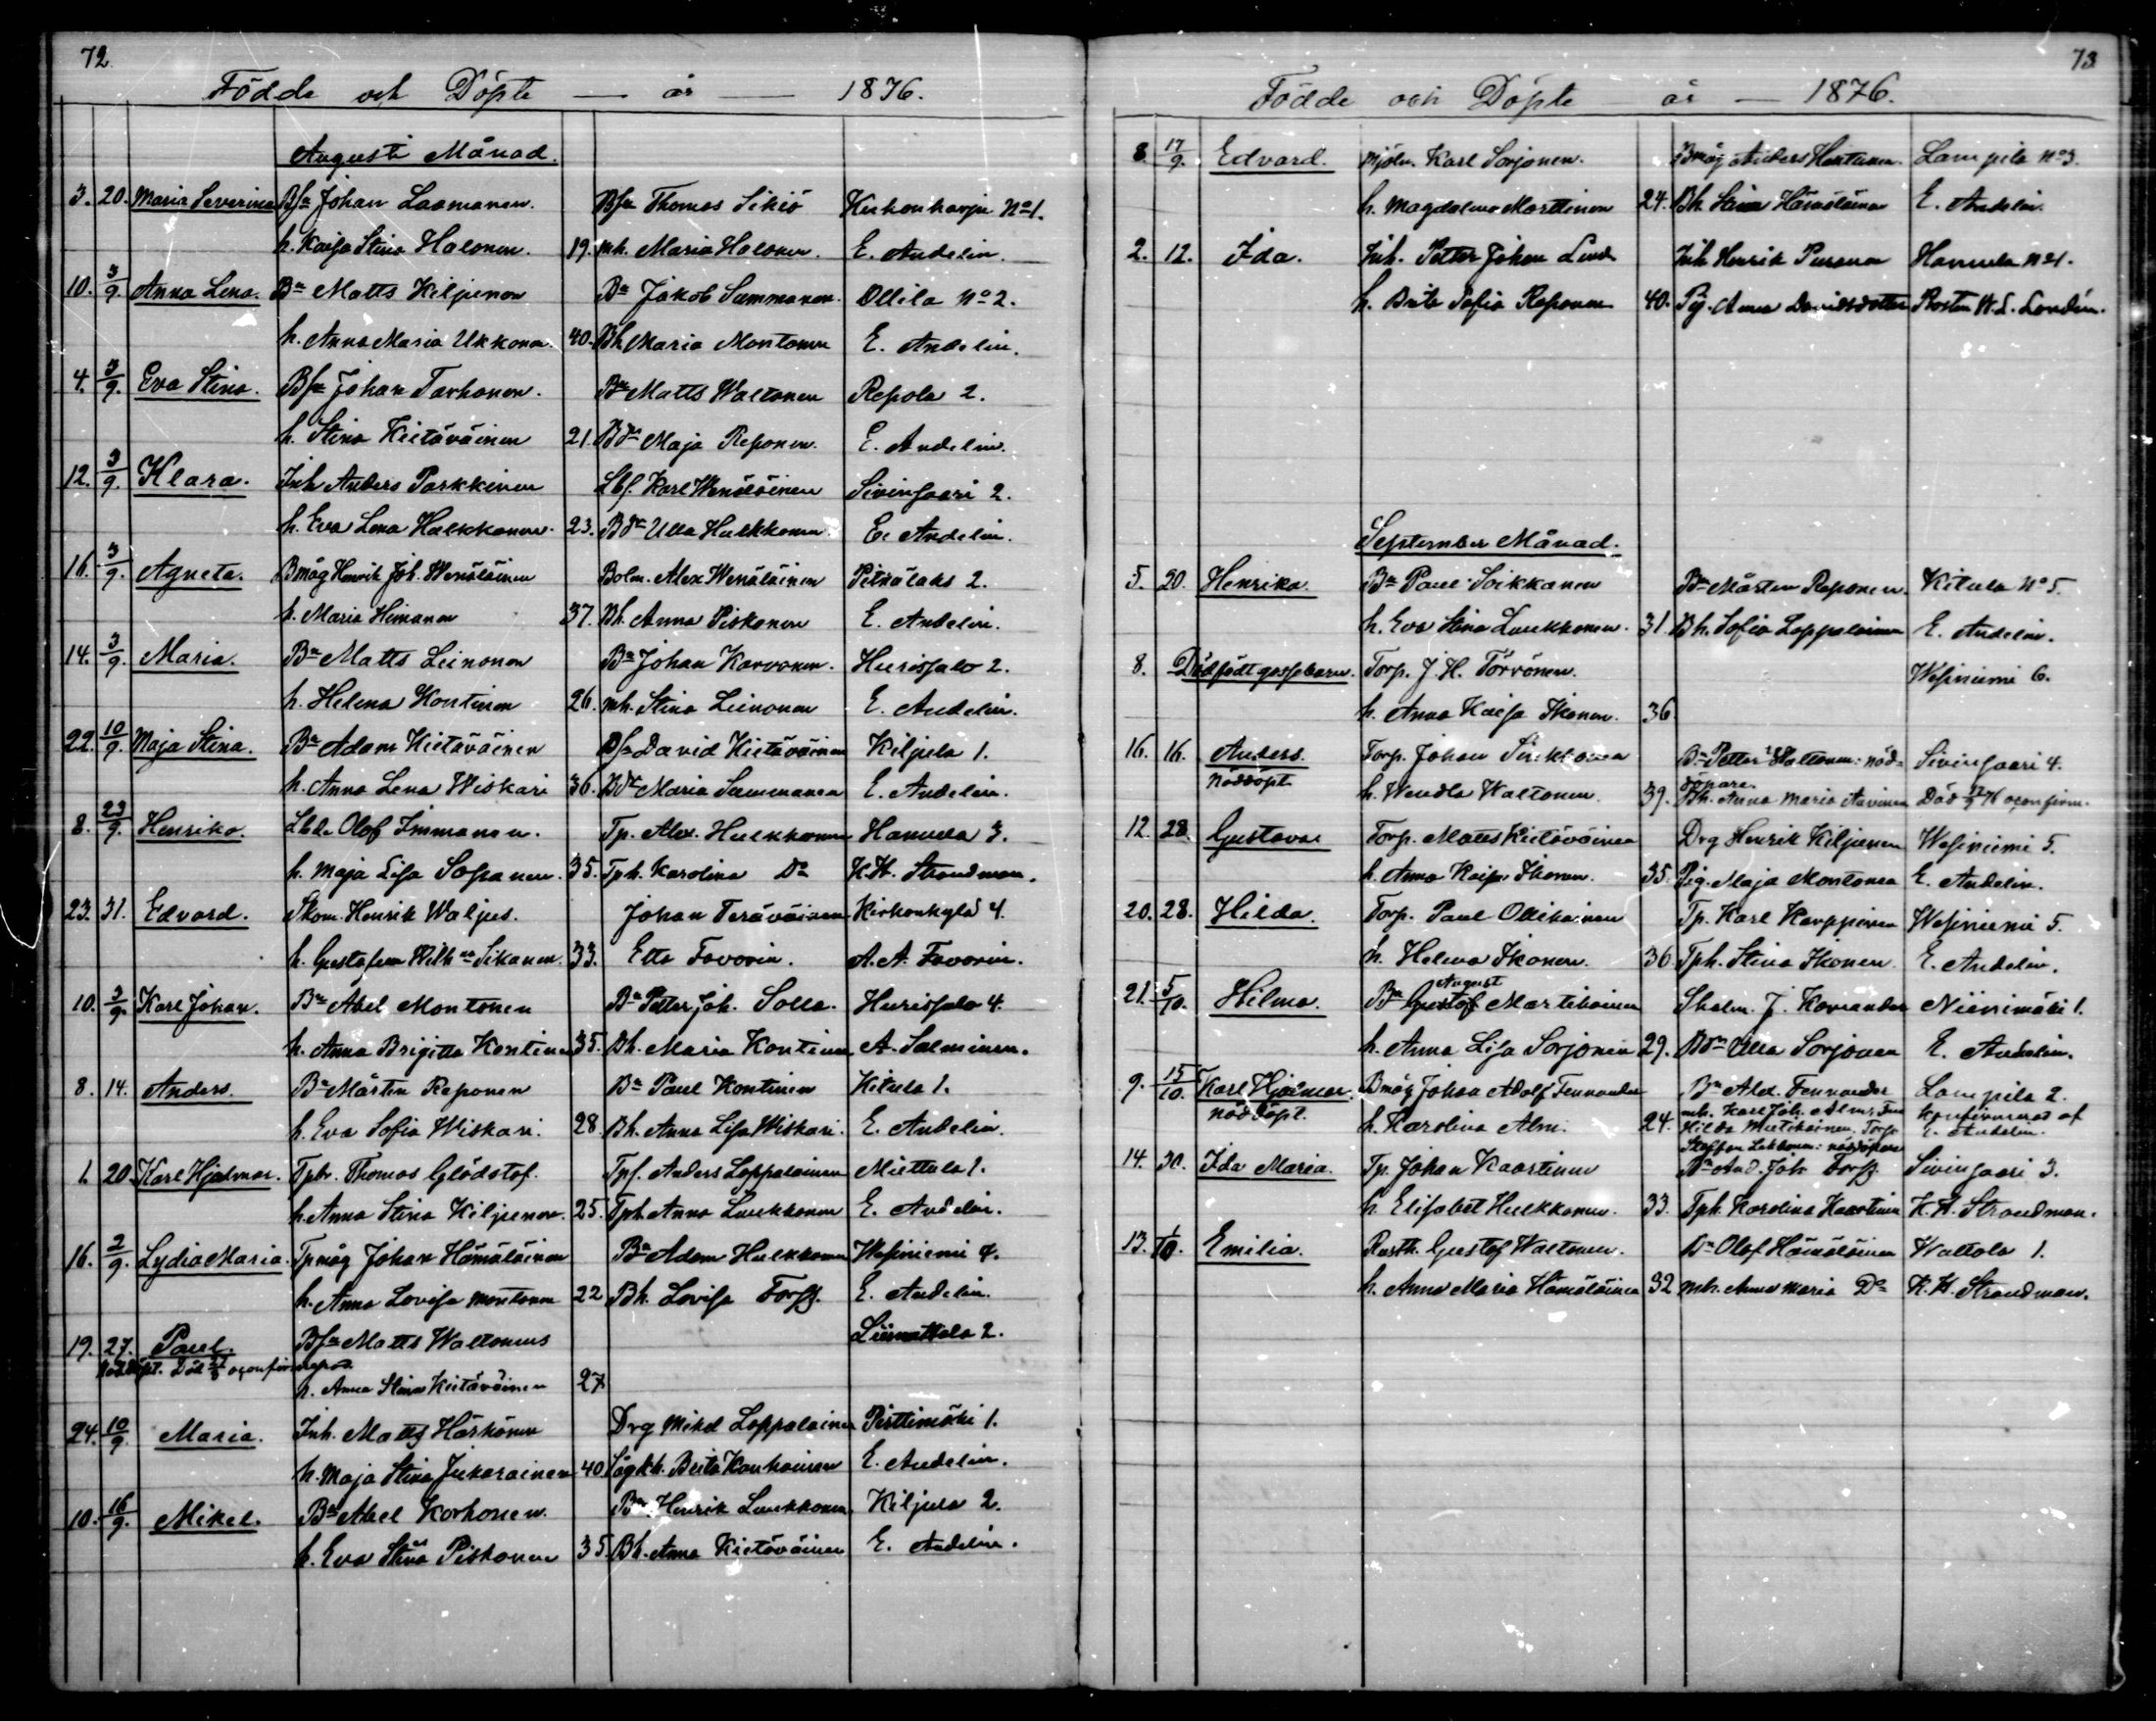 72.
Födde och Döpte — år — 1876.
Augusti Månad.
3. 20. Maria Severina Bfn Johan Laamanen. Bfn Thomas Sikiö No 1.
h. Kaisa Stina Halonen. 19. mh. Maria Halonen. E. Andelin
10. 3/9. Anna Lena. Bn Matts Kiljunen Bn Jakob Summanen. Ollila No 2.
h. Anna Maria Ukkonen. 40. Bh Maria Montonen E. Andelin.
4. 3/9. Eva Stina. Bfn Johan Tarhonen. Bn Matts Waltonen Repola 2.
h. Stina Kietäväinen 21. Bdr Maja Reponen. E. Andelin.
12. 3/9. Klara. Inh Anders Parkkinen Lbf. Karl Wenäläinen Sivinsaari 2.
h. Eva Lena Hulkkonen. 23. Bdr Ulla Hulkkonen. E. Andelin.
16. 3/9. Agneta. Bmåg Henrik Joh. Wenäläinen Bolm. Alex Wenäläinen Peträlaks 2.
h. Maria Himanen 37. Bh. Anna Piskonen E. Andelin.
14. 3/9. Maria. Bn Matts Leinonen Bn Johan Karvonen. Hurissalo 2.
h. Helena Kontinen 26. mh. Stina Leinonen E. Andelin.
22. 10/9. Maja Stina. Bn Adam Kietäväinen Bfn David Kietäväinen Kiljula 1.
h. Anna Lena Wiskari 36. Bdr Maria Summanen E. Andelin.
8. 23/9. Henrika. Lbd. Olof Immonen. Tp. Alex. Hulkkonen Hamula 3.
h. Maja Lisa Sopanen. 35. Tph. Karolina Do K. H. Strandman.
23. 31. Edvard. Skom. Henrik Waljus. Johan Teräväinen Kirkonkylä 4.
h. Gustafva Wilhna Sikanen. 33. Etta Favorin. A. A. Favorin.
10. 3/9. Karl Johan. Bn Abel Montonen Bn Petter Joh. Solla. Hurissalo 4.
h. Anna Brigitta Kontinen 35. Bh. Maria Kontinen A. Salminen.
8. 14. Anders. Bn Mårten Reponen Bn Paul Kontinen Kitula 1.
h. Eva Sofia Wiskari. 28. Bh. Anna Lisa Wiskari. E. Andelin.
1. 20. Karl Hjalmar. Tpbr. Thomas Glödstaf. Tpf. Anders Loppalainen Miettula 1.
h. Anna Stina Kiljunen. 25. Tph Anna Luukkonen E. Andelin.
16. 2/9. Lydia Maria. Tpmåg Johan Hämäläinen Bn Adam Hulkkonen Wesiniemi 4.
h. Anna Lovisa Montonen 22 Bh. Lovisa Forss. E. Andelin.
19. 27. Paul. Bfn Matts Waltonens Liimattala 2.
h. Anna Stina Kietäväinen 27
24. 10/9. Maria. Inh. Matts Härkönen Drg Mikel Loppalainen Pirttimäki 1.
h. Maja Stina Jukarainen 40 Brita Kauhanen E. Andelin.
10. 16/9. Mikel. Bn Abel Korhonen. Bn Henrik Luukkonen Kiljula 2.
h. Eva Stina Piskonen 35. Bh. Anna Kietäväinen E. Andelin.
73
Födde och Döpte år — 1876.
8. 17/9. Edvard. Mjöln. Karl Sorjonen. Bmåg Anders Lampila No 3.
h. Magdalena Marttinen 24. Bh. Stina Hämäläinen E. Andelin.
2. 12. Ida. Inh. Petter Johan Lind Inh Henrik Pursonen Hamula No 1.
h. Brita Sofia Reponen 40. Pig. Anna Davidsdotter Prosten W. L. Londén.
September Månad.
5. 20. Henrika. Bn Paul Soikkanen Bn Mårten Reponen. Kitula No 5.
h. Eva Stina Luukkonen. 31. Bh. Sofia Loppalainen E. Andelin.
8. Dödfödt gossebarn. Torp. J. H. Törrönen. Wesiniemi 6.
h. Anna Kaisa Ikonen. 36
16. 16. Anders. Torp. Johan Bn Petter Waltonen: nöd- Sivinsaari 4.
Nöddöpt h. Wendla Waltonen 39. döpare. Bh. Anna Maria Död oconfirm.
12. 28. Gustava Torp. Matts Kietäväinen Drg Henrik Kiljunen Wesiniemi 5.
h. Anna Kaisa Ikonen. 35. Pig. Maja Montonen E. Andelin.
20. 28. Hilda. Torp. Paul Ollikainen Tp. Karl Karppinen Wesiniemi 5.
h. Helena Ikonen. 36 Tph. Stina Ikonen E. Andelin.
August
21. 5/10. Hilma. Bn Gustaf Martikainen Skolm. J. Korander Niinimäki 1.
h. Anna Lisa Sorjonen 29. Bdr Ulla Sorjonen E. Andelin.
9. 15/10. Karl Hjalmar. Bmåg Johan Adolf Fennander Bn Alex. Fennander Lampila 2.
nöddöpt. h. Karolina Alm. 24. mh. Karl Joh. Alm. Konfirmerad af
Hilda Miettinen. Torp. E. Andelin.
Staffan Lukkonen: nöddöpare
14. 30. Ida Maria. Tp. Johan Kaartinen Bn And. Joh Forss. Sivinsaari 3.
h. Elisabet Hulkkonen. 33. Tph. Karolina Kaartinen K. H. Strandman.
13. 1/10. Emilia. Rusth. Gustaf Waltonen. Bn Olof Hämäläinen Wattola 1.
h. Anna Maria Hämäläinen 32 mh. Anna Maria Do K. H. Strandman.